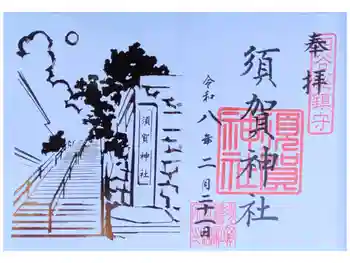 四谷總鎮守
奉拝
須賀神社
須賀神社
令和八年二月二十一日
須賀神社